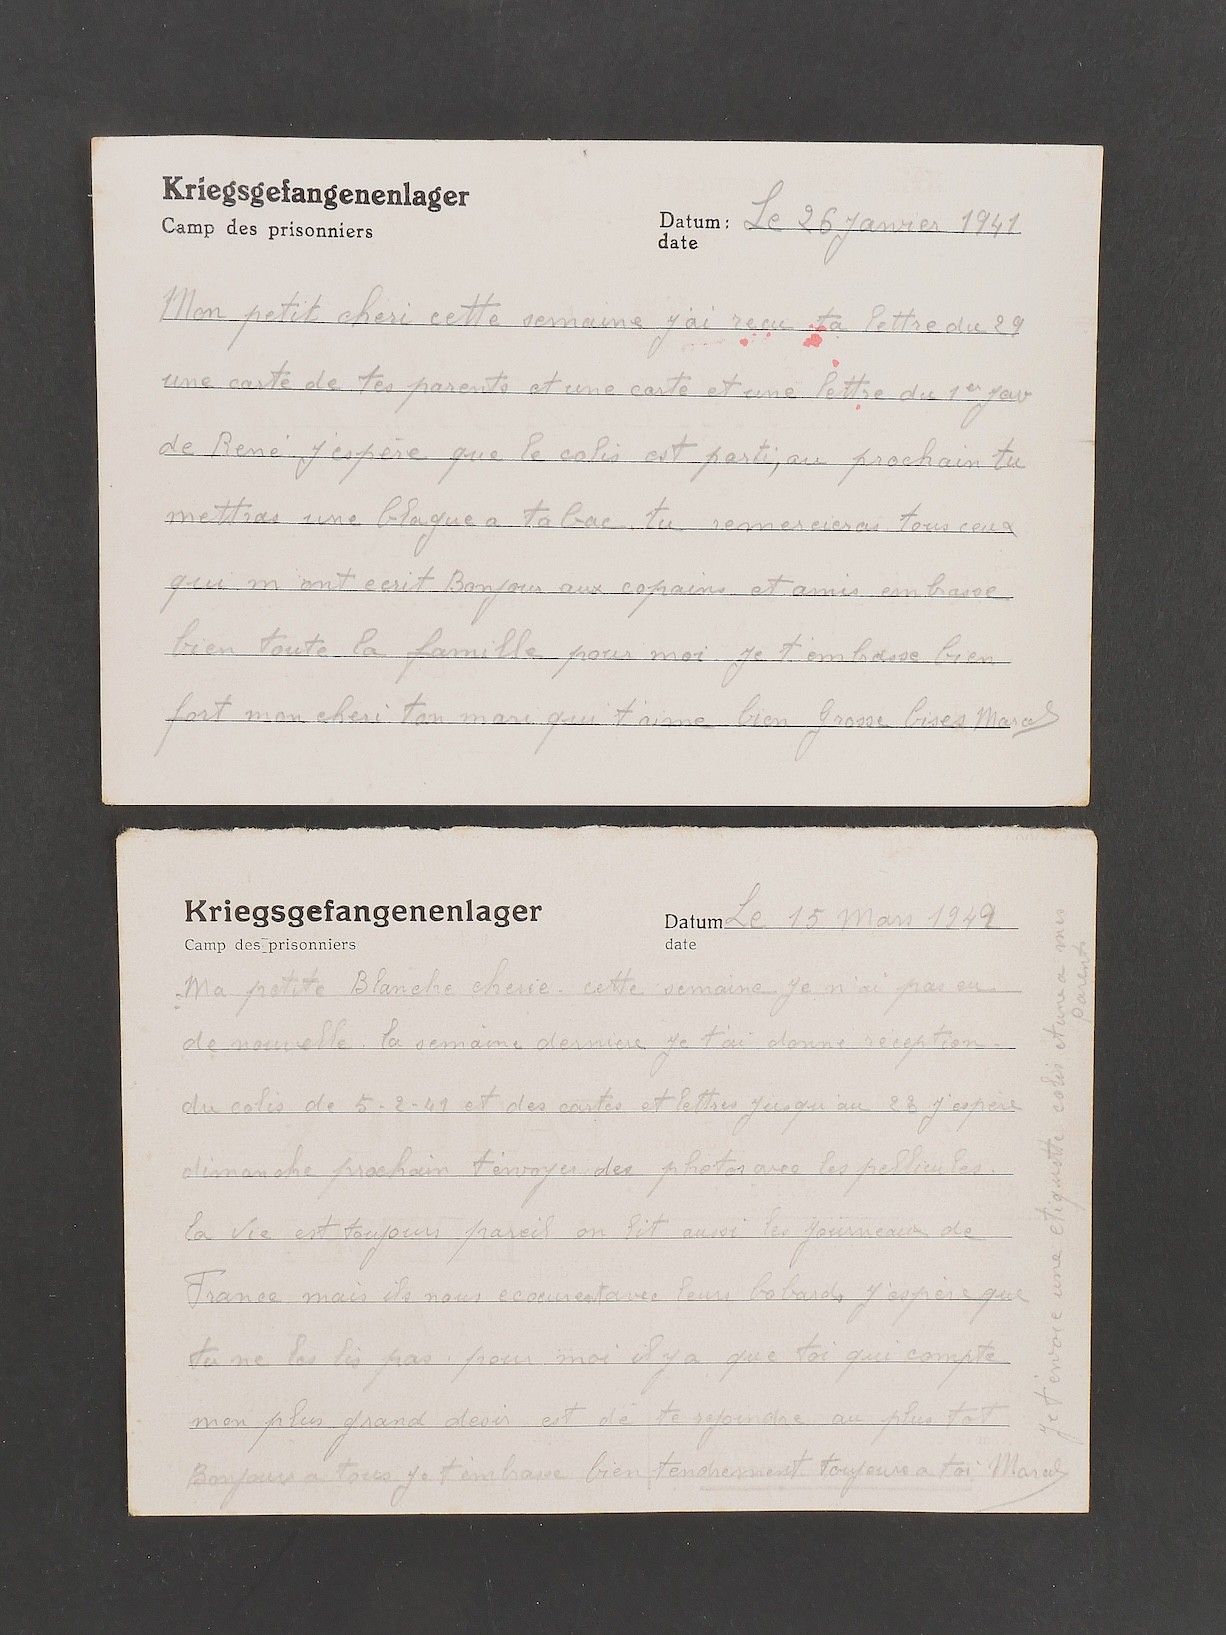 Kriegsgefangenenlager
Camp des prisonniers
Datum: Le 26 Janvier 1941
date
Mon petit cheri cette semaine j'ai reçu ta lettre du 29
une carte de tes parents et une carte et une lettre du 1er Janv
de René. J'espère que le colis est parti, au prochain tu
mettras une blague a tabac. tu remercieras tous ceux
qui m'ont ecrit Bonjour aux copains et amis embrasse
bien toute la famille pour moi je t'embrasse bien
fort mon cheri ton mari qui t'aime bien Grosse bises Marcel
Kriegsgefangenenlager
Camp des prisonniers
Datum Le 15 Mars 1942
date
Ma petite Blanche cherie. cette semaine je n'ai pas eu
de nouvelle. la semaine derniere je t'ai donne reception
du colis de 5-2-41 et des cartes et lettres jusqu'au 23 j'espère
dimanche prochain t'envoyer des photos avec les pellicules.
la vie est toujours pareil on lit aussi les journeaux de
France mais ils nous ecoeurent avec leurs bobards j'espère que
tu ne les lis pas. pour moi il y a que toi qui compte
mon plus grand desir est de te rejoindre au plus tot
Bonjour a tous je t'embrasse bien tendrement toujours a toi Marcel
Je t'envoie une etiquette colis et une a mes
parents